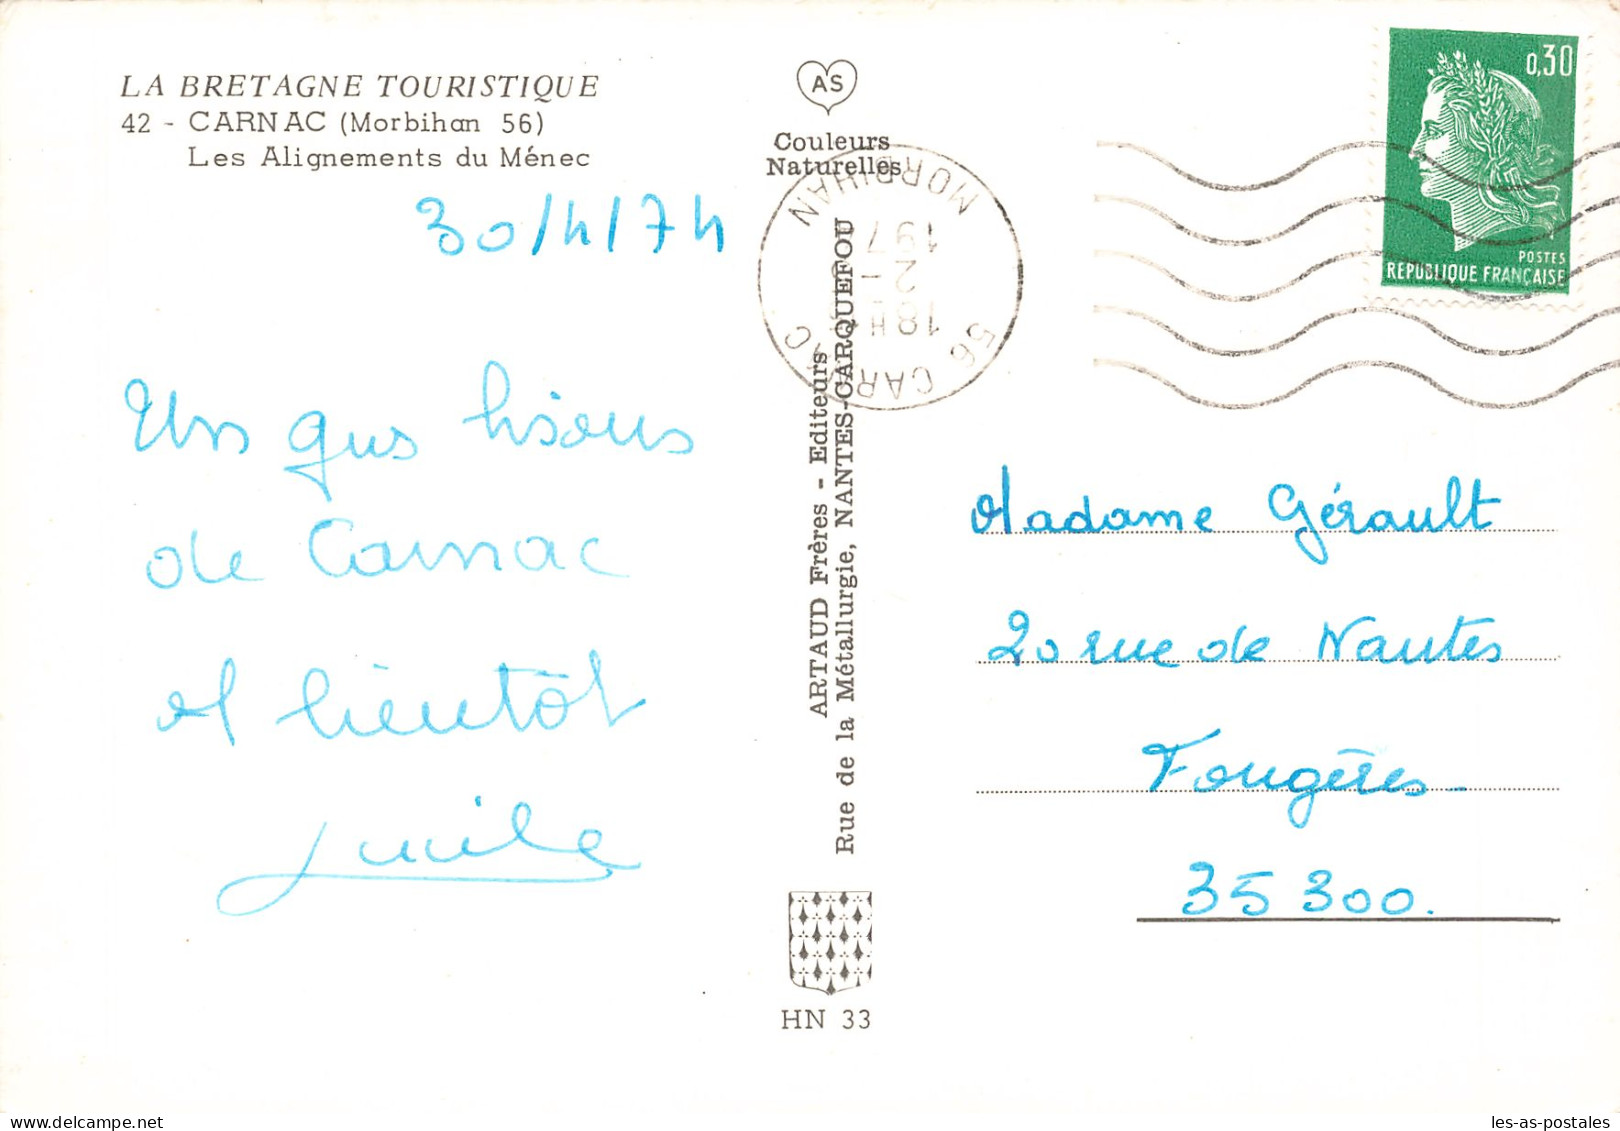 LA BRETAGNE TOURISTIQUE
42 - CARNAC (Morbihan 56)
Les Alignements du Ménec
30/4/74
Un gros bisous
de Carnac
A bientôt
Lucile
AS
Couleurs
Naturelles
ARTAUD Frères - Editeurs
Rue de la Métallurgie, NANTES-CARQUEFOU
HN 33
56 CARNAC
18H
2-
197
MORBIHAN
0,30
POSTES
REPUBLIQUE FRANÇAISE
Madame Gérault
20 rue de Nantes
Fougères-
35300.
les-as-postales